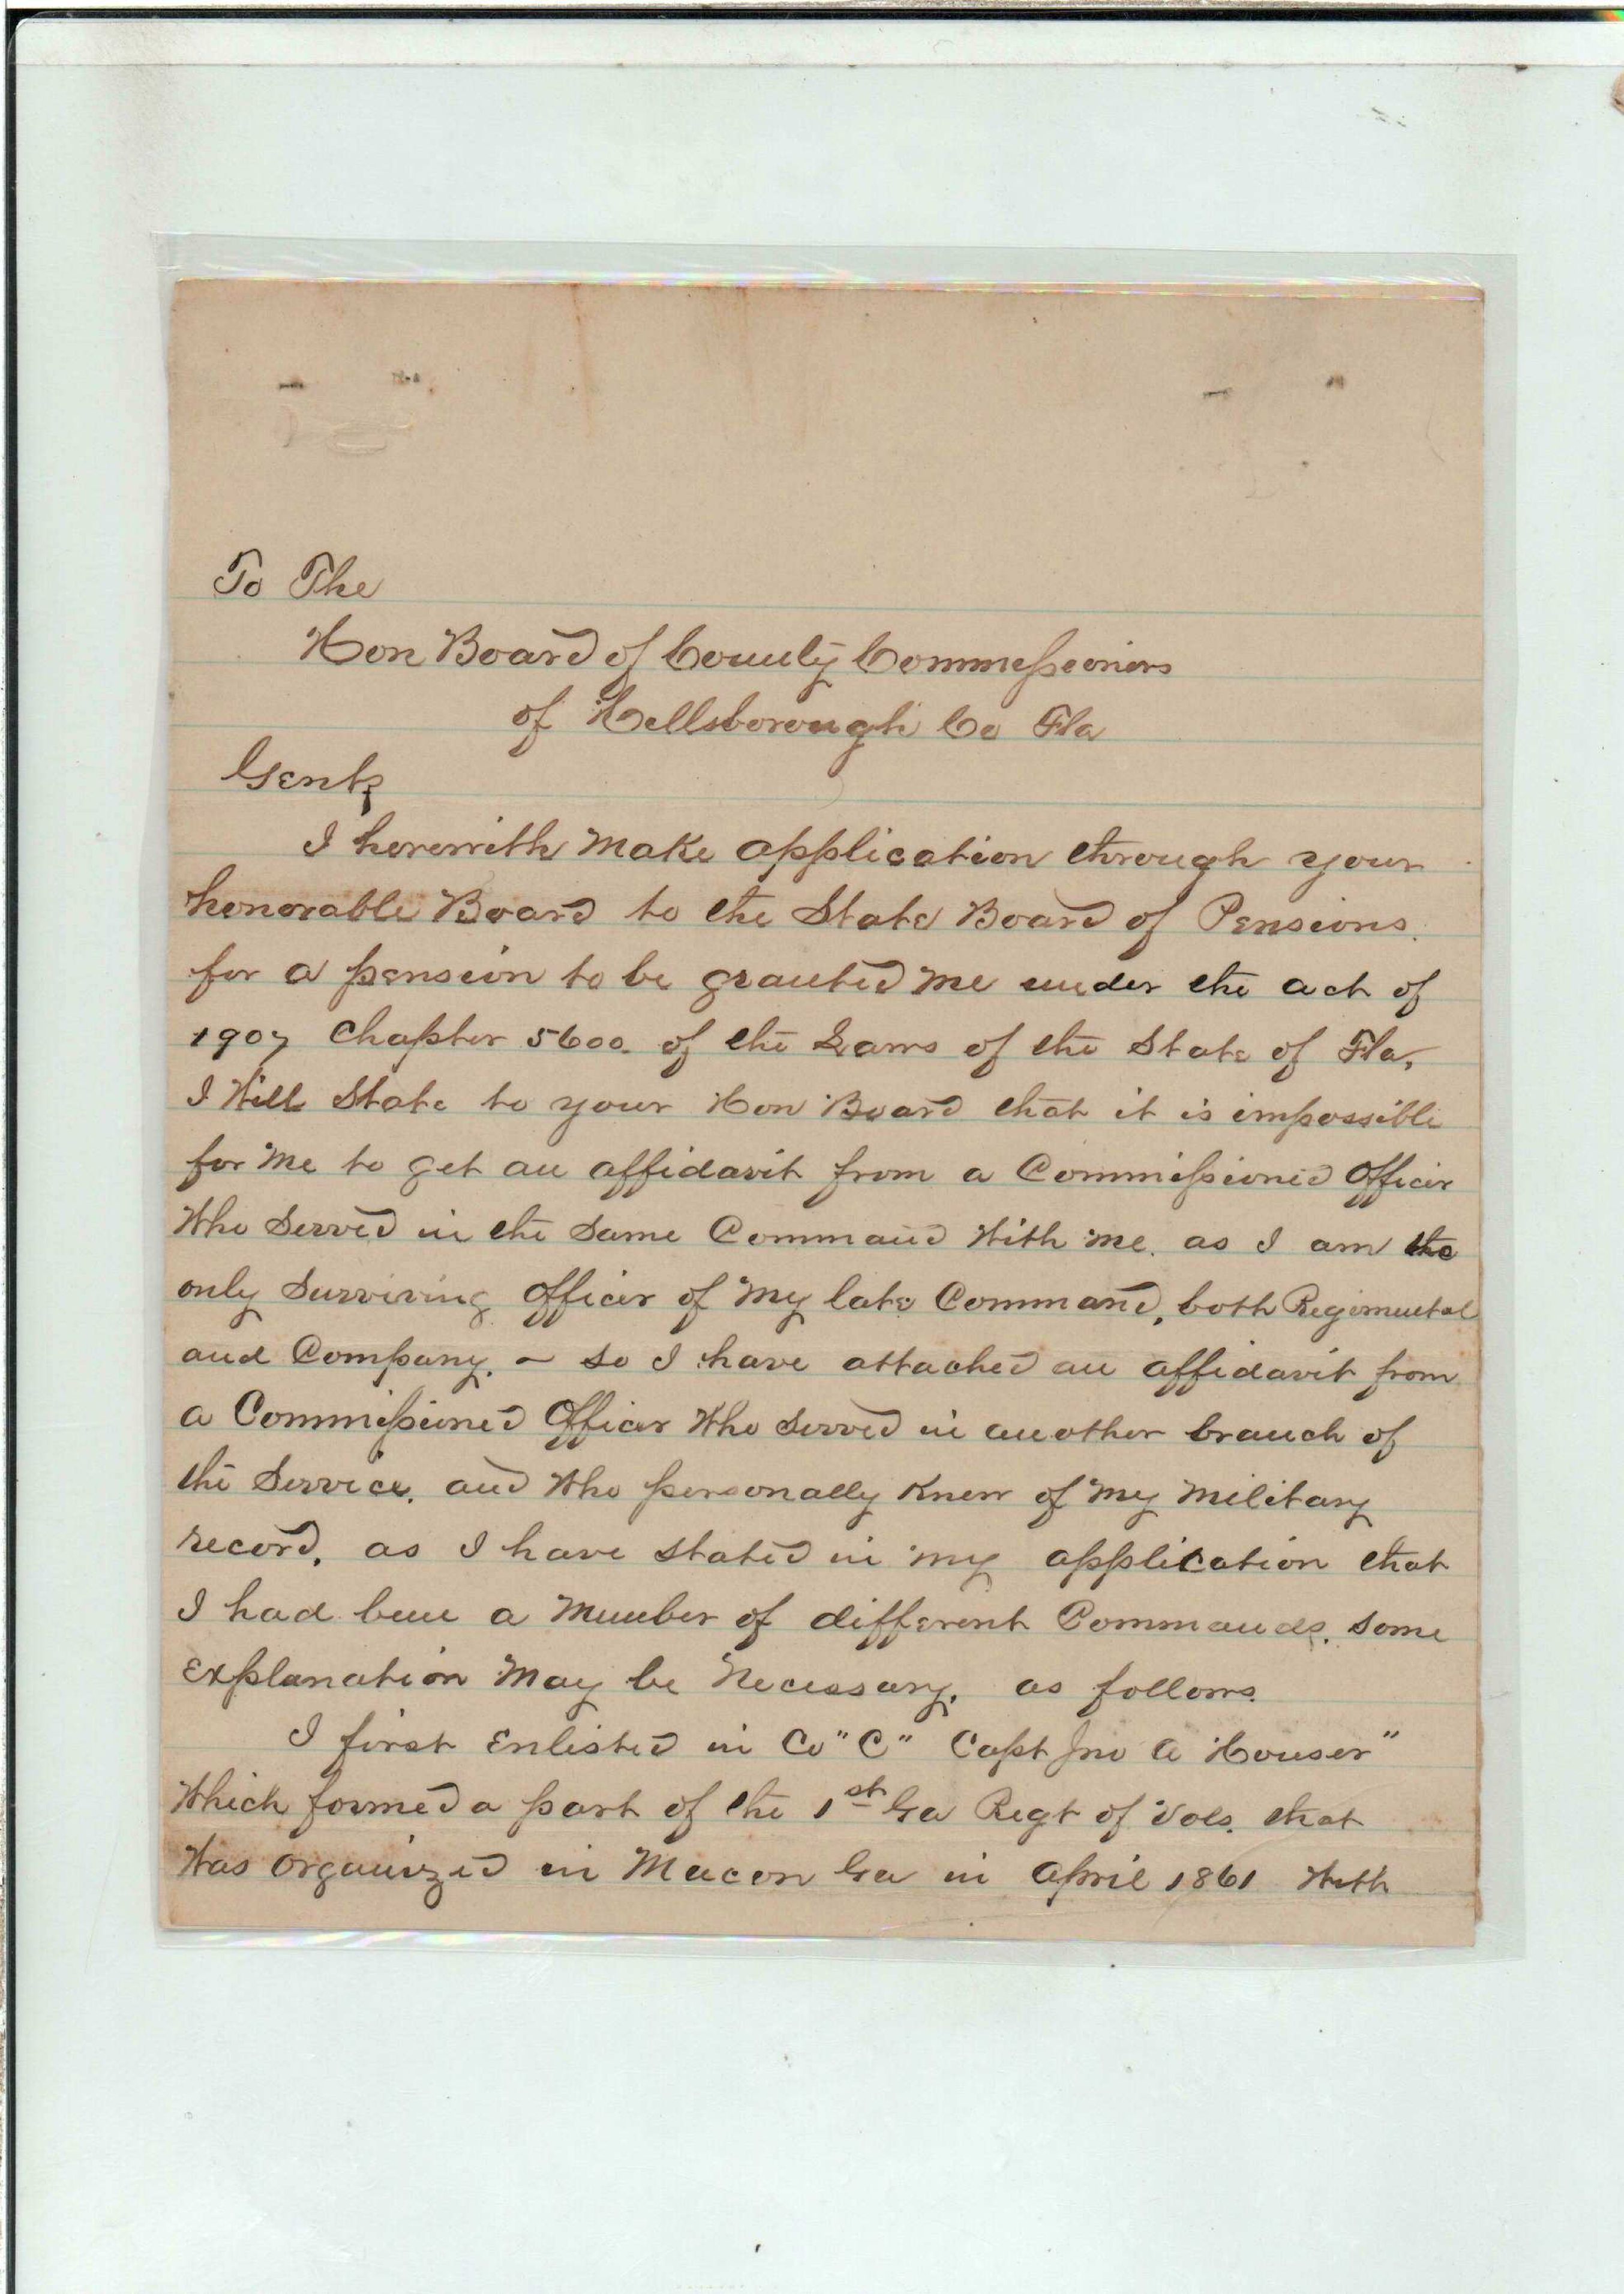 To The
Hon Board of County Commissioners
of Hillsborough Co Fla
Gents
I herewith make application through your
honorable Board to the State Board of Pensions.
for a pension to be granted me under the act of
1907 Chapter 5600. of the Laws of the State of Fla,
I Will State to your Hon Board that it is impossible
for me to get an affidavit from a Commissioned officer
Who Served in the Same Command With me. as I am the
only Surviving officer of my late Command, both Regimental
and Company. - So I have attached an affidavit from
a Commissioned Officer Who Served in another branch of
the Service. and Who personally Knew of my military
record, as I have stated in my application that
I had been a Member of different Commands. Some
Explanation May be Necessary. as follows.
I first Enlisted in Co "C" Capt Jno A Houser"
Which formed a part of the 1st Ga Regt of Vols. that
Was organized in Macon Ga in April 1861 With